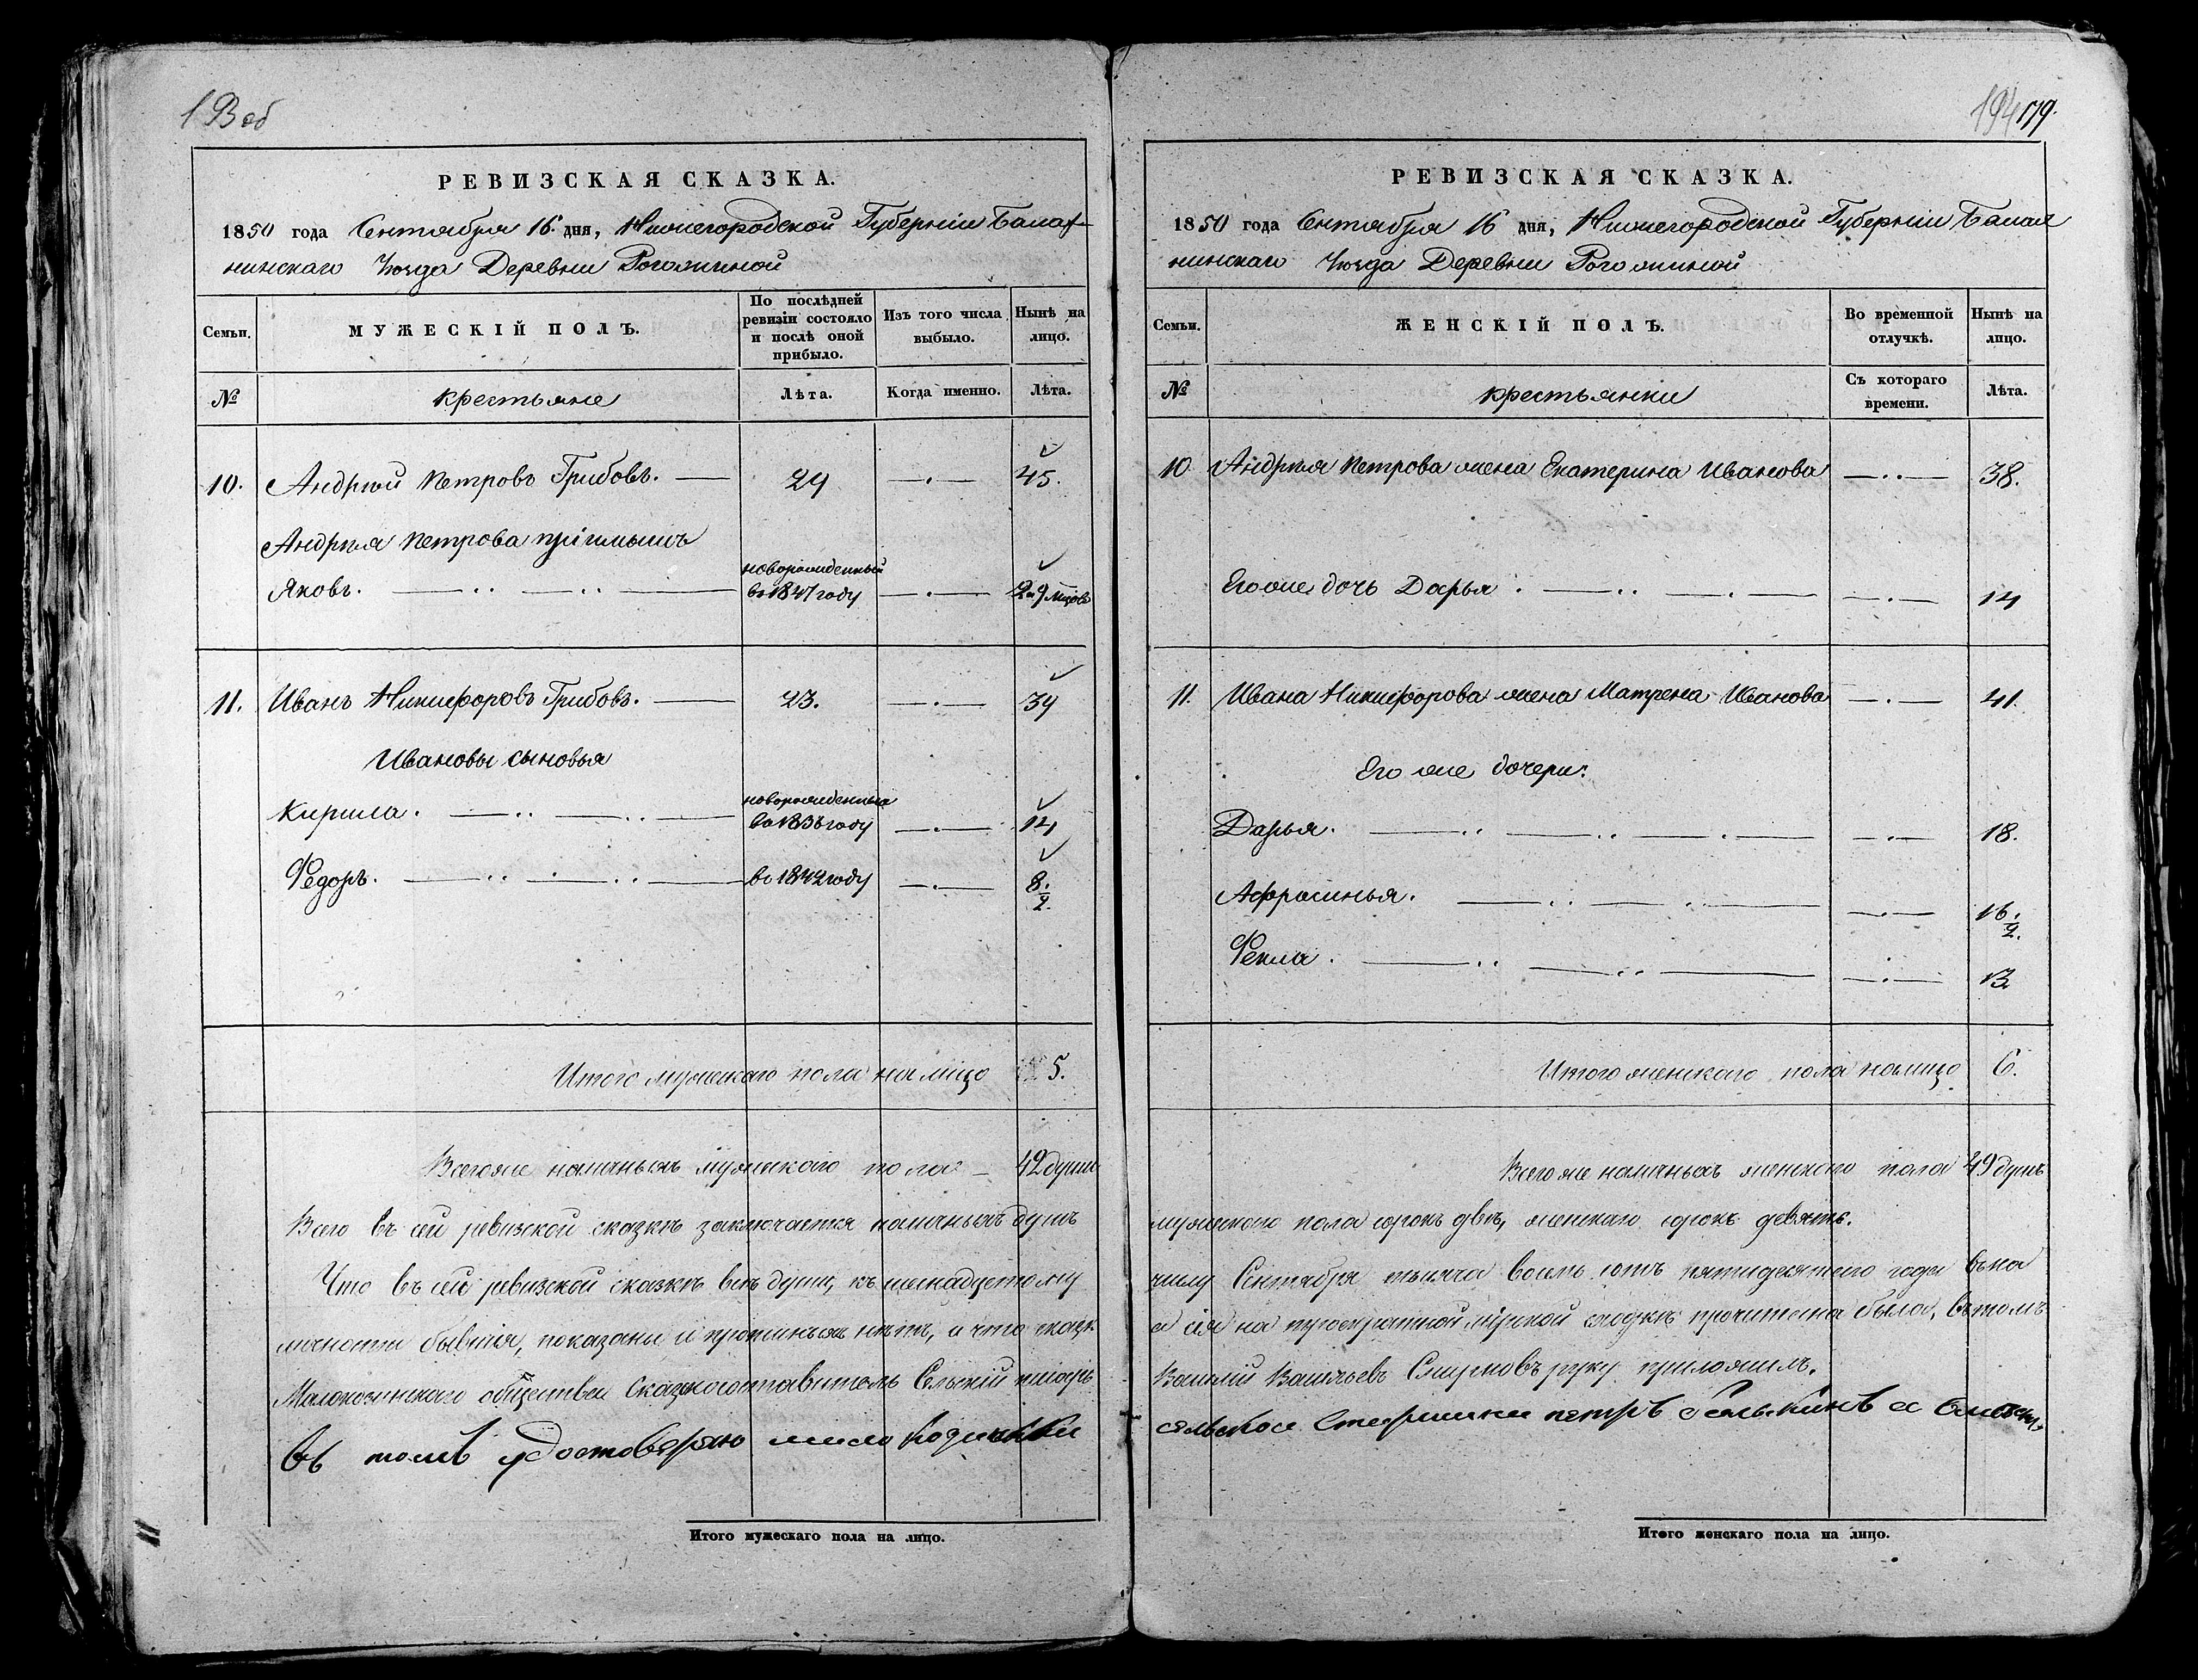 193 об
РЕВИЗСКАЯ СКАЗКА.
1850 года Сентября 16. дня, Нижегородской Губерніи Балах-
нинскаго Уѣзда Деревни Рогожиной
Семьи.
МУЖЕСКІЙ ПОЛЪ.
По послѣдней ревизіи состояло и послѣ оной прибыло.
Изъ того числа выбыло.
Нынѣ на лицо.
№
крестьяне
Лѣта.
Когда именно.
Лѣта.
10. Андрѣй Петровъ Грибовъ. 29 45.
Андрѣя Петрова пріимышъ
Яковъ. новорожденный во 1847 году 2 и 9 мцовъ
11. Иванъ Никифоровъ Грибовъ. 23. 39
Ивановы сыновья
Кирила. новорожденные во 1836 году 14
Федоръ. во 1842 году 8. 1/2.
Итого мужескаго пола на лицо 5.
Всего же наличныхъ мужескаго пола 42 души
Всего въ сей ревизской сказкѣ заключается наличныхъ душъ
Что въ сей ревизской сказкѣ всѣ души, къ шенадцетому
личности бывшія, показаны и прописныхъ нѣтъ, и что сказк
Малокозинскаго общества Сказкосоставитель Сельскій писарь
въ томъ удостоверяю
Итого мужескаго пола на лицо.
194 179.
РЕВИЗСКАЯ СКАЗКА.
1850 года Сентября 16 дня, Нижегородской Губерніи Балах
нинскаго Уѣзда Деревни Рогожиной
Семьи.
ЖЕНСКІЙ ПОЛЪ.
Во временной отлучкѣ.
Нынѣ на лицо.
№
крестьянки
Съ котораго времени.
Лѣта.
10 Андрѣя Петрова жена Екатерина Иванова 38.
Его же дочь Дарья. 14
11. Ивана Никифорова жена Матрена Иванова 41.
Его же дочери:
Дарья. 18.
Афросинья. 16. 1/2.
Фекла. 13.
Итого женскаго пола на лицо 6.
Всего же наличныхъ женскаго пола 49 душъ
мужескаго пола сорокъ двѣ, женскаго сорокъ девять.
числу Сентября тысяча восемь сотъ пятидесятого года въ на
а сія на троекратной мірской сходкѣ прочитана была, въ томъ
Василій Васильевъ Смирновъ руку приложилъ.
сельскои Старшина петръ
Итого женскаго пола на лицо.